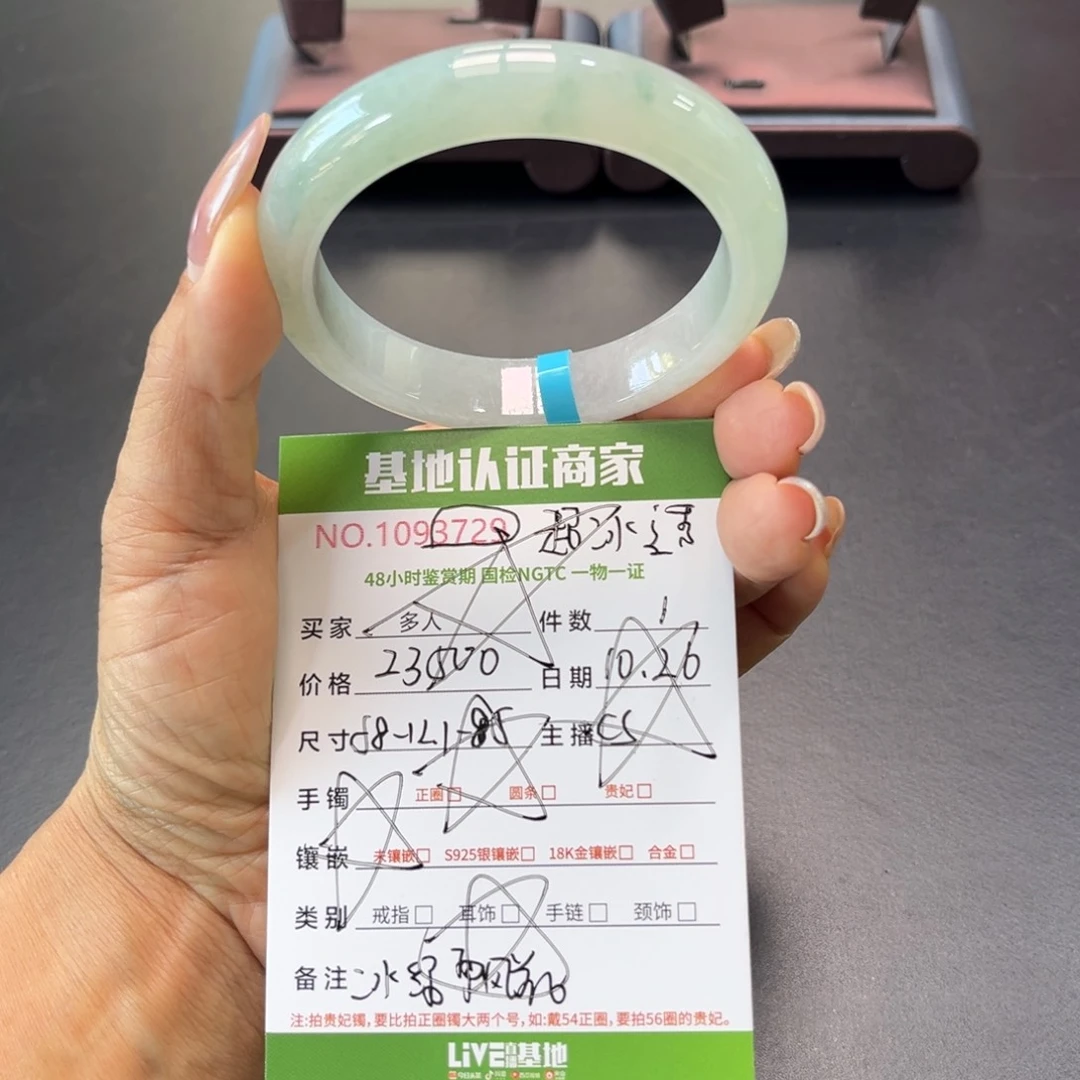 基地认证商家
NO.1093729 超冰透
48小时鉴赏期 国检NGTC 一物一证
买家 多人 件数 1
价格 23500 日期 10.26
尺寸 58-12.1-85 主播 CS
手镯 正圈□ 圆条□ 贵妃□
镶嵌 未镶嵌□ S925银镶嵌□ 18K金镶嵌□ 合金□
类别 戒指□ 耳饰□ 手链□ 颈饰□
备注 冰
注:拍贵妃镯,要比拍正圈镯大两个号,如:戴54正圈,要拍56圈的贵妃。
LiVE直播基地
今日头条 抖音